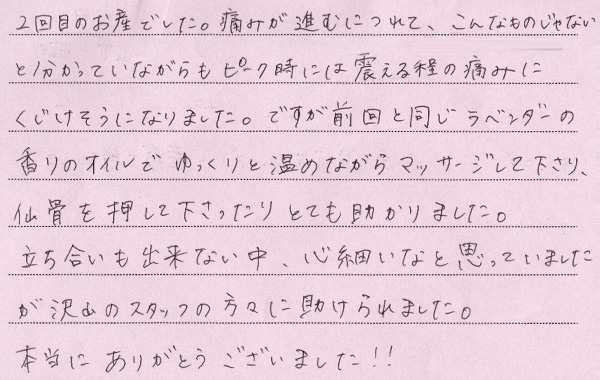 2回目のお産でした。痛みが進むにつれて、こんなものじゃない
と分かっていながらもピーク時には震える程の痛みに
くじけそうになりました。ですが前回と同じラベンダーの
香りのオイルでゆっくりと温めながらマッサージして下さり、
仙骨を押して下さったりとても助かりました。
立ち合いも出来ない中、心細いなと思っていました
が沢山のスタッフの方々に助けられました。
本当にありがとうございました!!